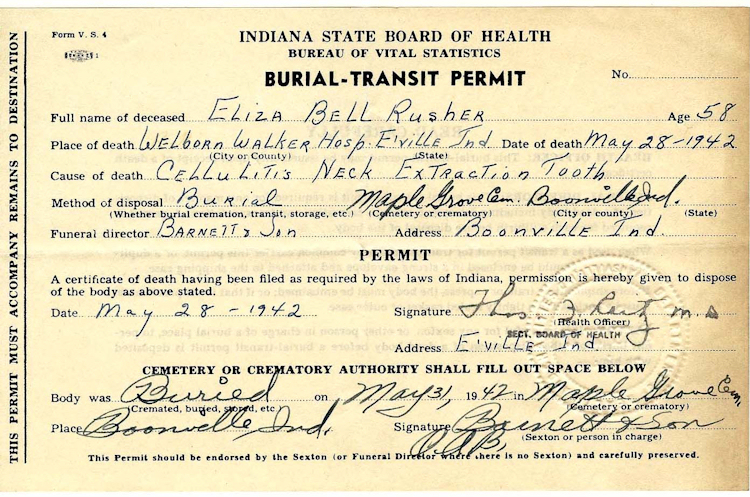 Form V. S. 4
INDIANA STATE BOARD OF HEALTH
BUREAU OF VITAL STATISTICS
BURIAL-TRANSIT PERMIT
No.
Full name of deceased ELIZA BELL RUSHER Age 58
Place of death WELBORN WALKER HOSP. E'VILLE IND Date of death MAY 28-1942
(City or County) (State)
Cause of death CELLULITIS NECK EXTRACTION TOOTH
Method of disposal BURIAL Maple Grove Cem. Boonville Ind.
(Whether burial cremation, transit, storage, etc.) (Cemetery or crematory) (City or county) (State)
Funeral director BARNETT & SON Address BOONVILLE IND.
PERMIT
A certificate of death having been filed as required by the laws of Indiana, permission is hereby given to dispose
of the body as above stated.
Date MAY 28-1942 Signature Thos. M D
(Health Officer)
SECT. BOARD OF HEALTH
Address E'VILLE IND
CEMETERY OR CREMATORY AUTHORITY SHALL FILL OUT SPACE BELOW
Body was Buried on May 31, 1942 in Maple Grove Cem.
(Cremated, buried, stored, etc.) (Cemetery or crematory)
Place Boonville, Ind. Signature Barnett & Son
(Sexton or person in charge)
This Permit should be endorsed by the Sexton (or Funeral Director where there is no Sexton) and carefully preserved.
THIS PERMIT MUST ACCOMPANY REMAINS TO DESTINATION